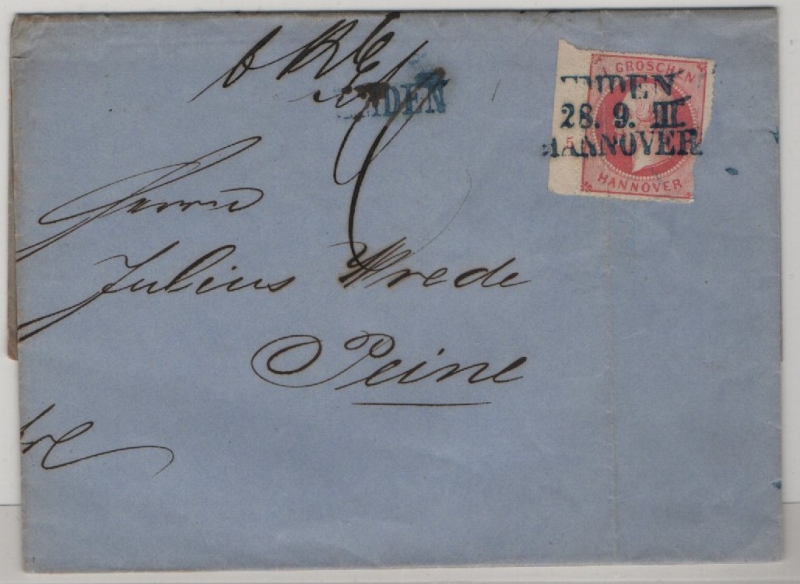 EMDEN
1 GROSCHEN
EMDEN
28. 9. III.
HANNOVER
HANNOVER
Herrn
Julius Wrede
Peine